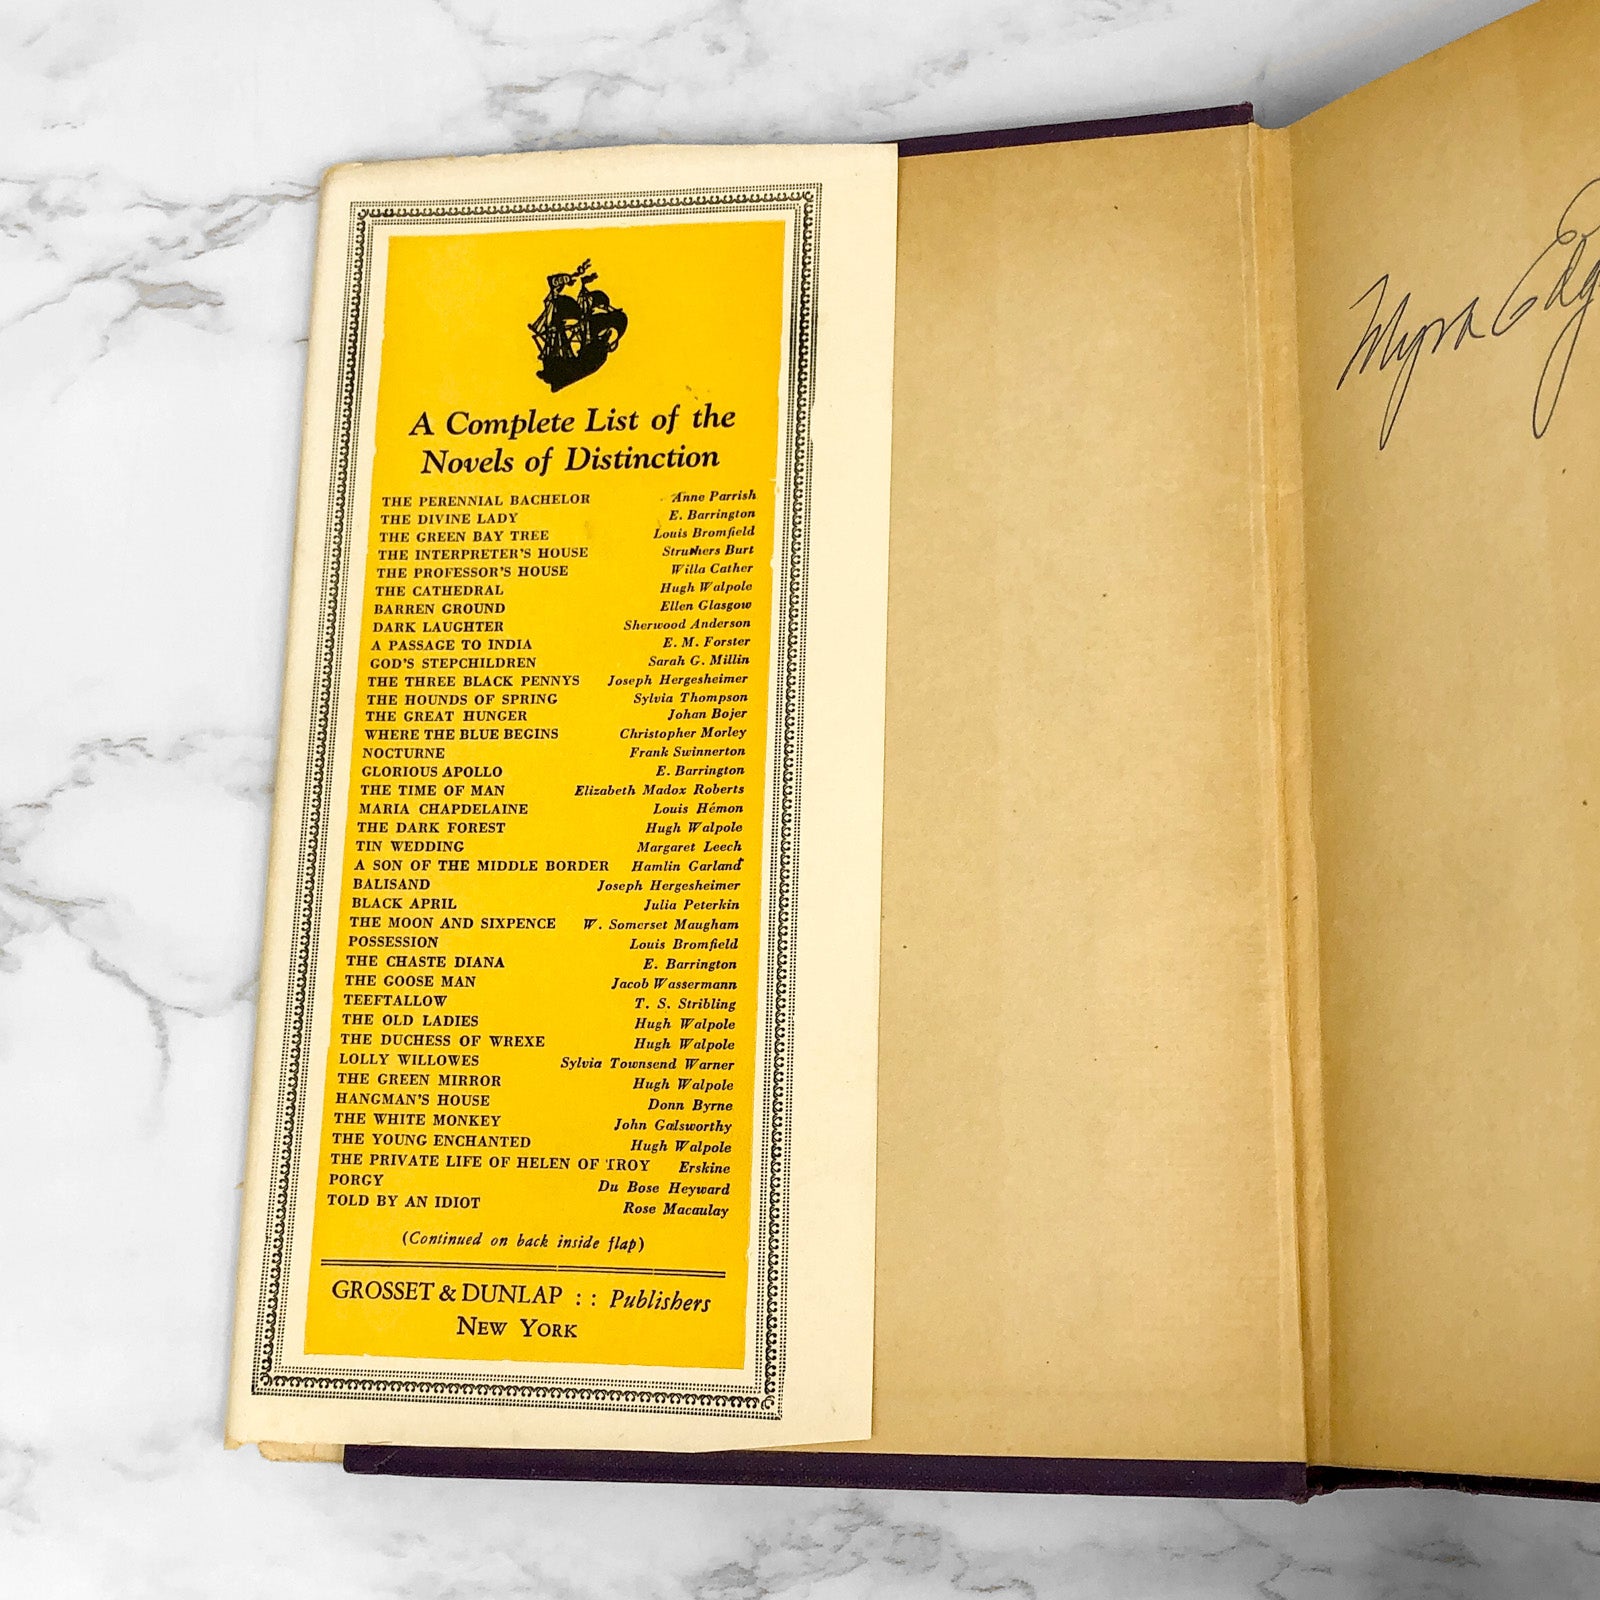 A Complete List of the
Novels of Distinction
THE PERENNIAL BACHELOR Anne Parrish
THE DIVINE LADY E. Barrington
THE GREEN BAY TREE Louis Bromfield
THE INTERPRETER'S HOUSE Struthers Burt
THE PROFESSOR'S HOUSE Willa Cather
THE CATHEDRAL Hugh Walpole
BARREN GROUND Ellen Glasgow
DARK LAUGHTER Sherwood Anderson
A PASSAGE TO INDIA E. M. Forster
GOD'S STEPCHILDREN Sarah G. Millin
THE THREE BLACK PENNYS Joseph Hergesheimer
THE HOUNDS OF SPRING Sylvia Thompson
THE GREAT HUNGER Johan Bojer
WHERE THE BLUE BEGINS Christopher Morley
NOCTURNE Frank Swinnerton
GLORIOUS APOLLO E. Barrington
THE TIME OF MAN Elizabeth Madox Roberts
MARIA CHAPDELAINE Louis Hémon
THE DARK FOREST Hugh Walpole
TIN WEDDING Margaret Leech
A SON OF THE MIDDLE BORDER Hamlin Garland
BALISAND Joseph Hergesheimer
BLACK APRIL Julia Peterkin
THE MOON AND SIXPENCE W. Somerset Maugham
POSSESSION Louis Bromfield
THE CHASTE DIANA E. Barrington
THE GOOSE MAN Jacob Wassermann
TEEFTALLOW T. S. Stribling
THE OLD LADIES Hugh Walpole
THE DUCHESS OF WREXE Hugh Walpole
LOLLY WILLOWES Sylvia Townsend Warner
THE GREEN MIRROR Hugh Walpole
HANGMAN'S HOUSE Donn Byrne
THE WHITE MONKEY John Galsworthy
THE YOUNG ENCHANTED Hugh Walpole
THE PRIVATE LIFE OF HELEN OF TROY Erskine
PORGY Du Bose Heyward
TOLD BY AN IDIOT Rose Macaulay
(Continued on back inside flap)
GROSSET & DUNLAP :: Publishers
NEW YORK
Myra